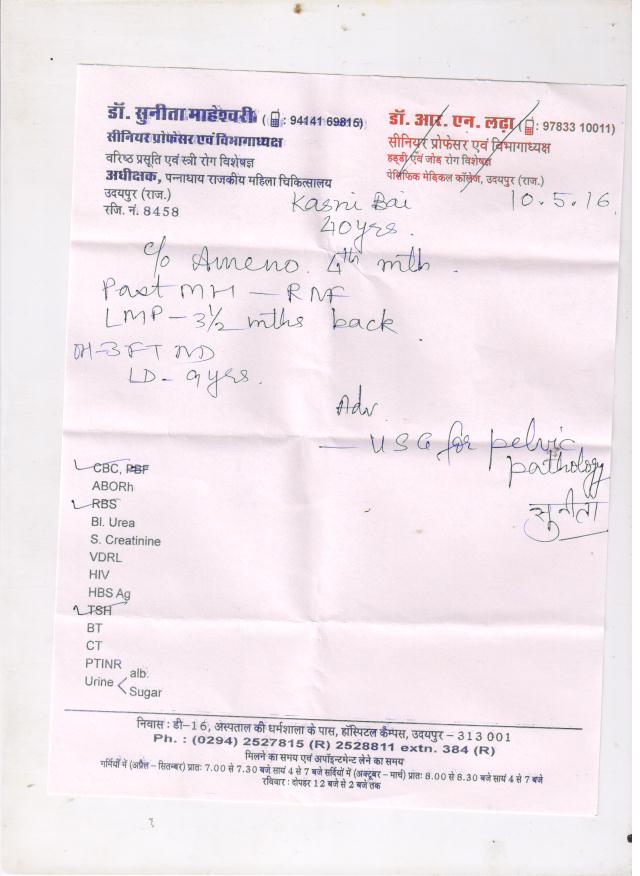 डॉ. सुनीता माहेश्वरी ( : 94141 69815)
सीनियर प्रोफेसर एवं विभागाध्यक्ष
वरिष्ठ प्रसूति एवं स्त्री रोग विशेषज्ञ
अधीक्षक, पन्नाधाय राजकीय महिला चिकित्सालय
उदयपुर (राज.)
रजि. नं. 8458
डॉ. आर. एन. लढ़ा ( : 97833 10011)
सीनियर प्रोफेसर एवं विभागाध्यक्ष
हड्डी एवं जोड़ रोग विशेषज्ञ
पेसिफिक मेडिकल कॉलेज, उदयपुर (राज.)
Kasni Bai 10.5.16
40 yrs.
c/o Ameno. 4th mth.
Past MH – RNF
LMP – 3½ mths back
OH-3 FT ND
LD - 9 yrs.
Adv
— USG for pelvic
pathology
सुनीता
CBC, PBF
ABORh
RBS
Bl. Urea
S. Creatinine
VDRL
HIV
HBS Ag
TSH
BT
CT
PTINR
Urine < alb.
Sugar
निवास : डी-16, अस्पताल की धर्मशाला के पास, हॉस्पिटल कैम्पस, उदयपुर – 313 001
Ph. : (0294) 2527815 (R) 2528811 extn. 384 (R)
मिलने का समय एवं अपॉइन्टमेन्ट लेने का समय
गर्मियों में (अप्रैल – सितम्बर) प्रातः 7.00 से 7.30 बजे सायं 4 से 7 बजे सर्दियों में (अक्टूबर – मार्च) प्रातः 8.00 से 8.30 बजे सायं 4 से 7 बजे
रविवार : दोपहर 12 बजे से 2 बजे तक